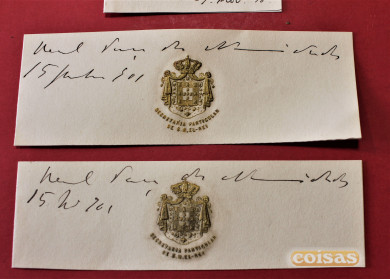 Real Paço das Necessidades
15 901
SECRETARIA PARTICULAR
DE S. M. EL-REI
Real Paço das Necessidades
15 901
SECRETARIA PARTICULAR
DE S. M. EL-REI
coisas